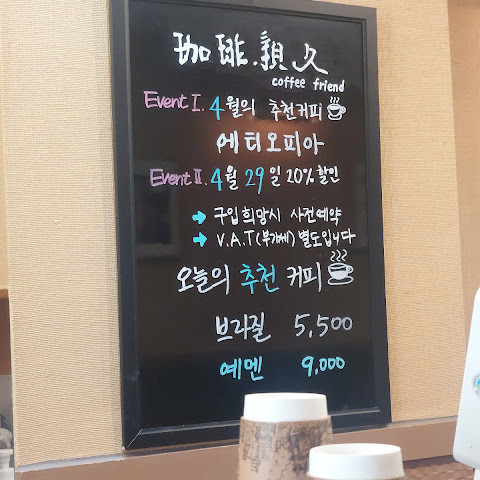 珈琲.親久
coffee friend
Event Ⅰ. 4월의 추천커피
에티오피아
Event Ⅱ. 4월 29일 20% 할인
→ 구입희망시 사전예약
→ V.A.T(부가세) 별도입니다
오늘의 추천 커피
브라질 5,500
예멘 9,000